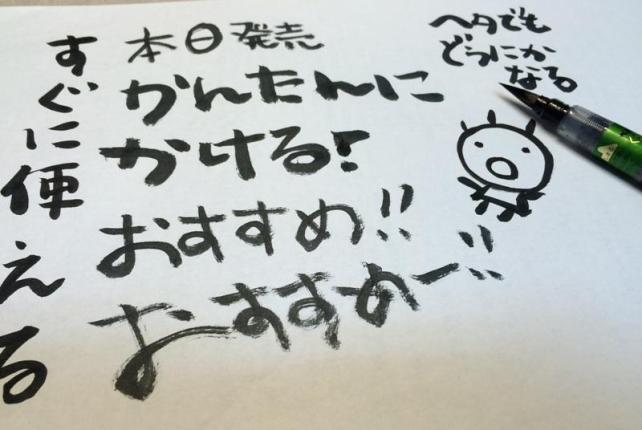 本日発売
かんたんに
かける!
おすすめ!!
おすすめー!!
すぐに便える
ヘタでも
どうにか
なる